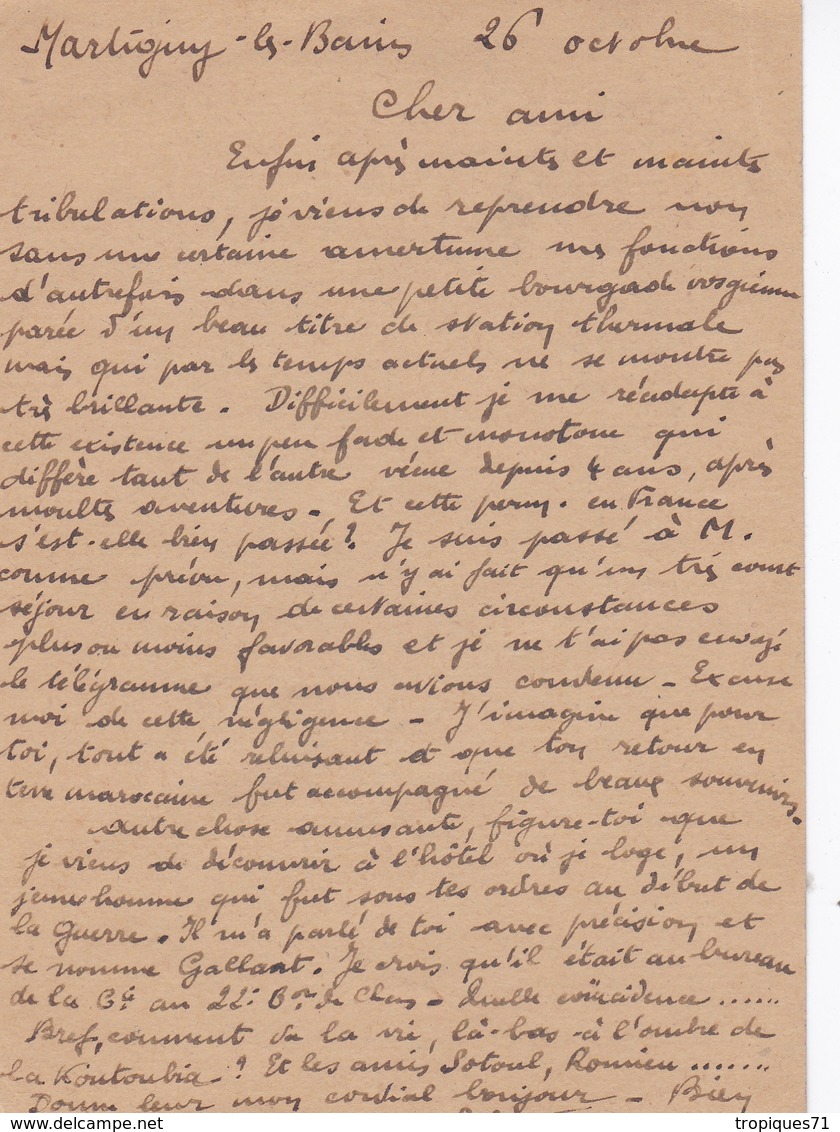 Martigny-les-Bains 26 octobre
Cher ami
Enfin après maints et maints
tribulations, je viens de reprendre non
sans une certaine amertume mes fonctions
d'autrefois dans une petite bourgade vosgienne
parée d'un beau titre de station thermale
mais qui par les temps actuels ne se montre pas
très brillante. Difficilement je me réadapte à
cette existence un peu fade et monotone qui
diffère tant de l'autre vécue depuis 4 ans, après
moultes aventures. Et cette perm. en France
s'est-elle bien passée ? Je suis passé à M.
comme prévu, mais n'y ai fait qu'un très court
séjour en raison de certaines circonstances
plus ou moins favorables et je ne t'ai pas envoyé
le télégramme que nous avions convenu - Excuse
moi de cette négligence - J'imagine que pour
toi, tout a été reluisant et que ton retour en
terre marocaine fut accompagné de beaux souvenirs.
Autre chose amusante, figure-toi que
je viens de découvrir à l'hôtel où je loge, un
jeune homme qui fut sous tes ordres au début de
la Guerre. Il m'a parlé de toi avec précision et
se nomme Gallant. Je crois qu'il était au bureau
de la Cie au 22e Bon de Chas - Quelle coïncidence ......
Bref, comment va la vie, là-bas à l'ombre de
la Koutoubia ? Et les amis Sotoul, Romieu .......
Donne leur mon cordial bonjour - Bien
tropiques71